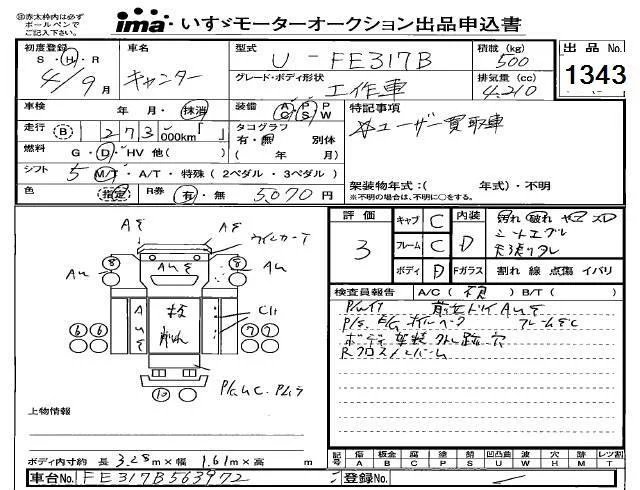 ㊟赤太枠内は必ず
ボールペンで
ご記入下さい。
ima いすゞモーターオークション出品申込書
初度登録 S・H・R 4/9月
車名 キャンター
型式 U-FE317B
グレード・ボディ形状 工作車
積載(kg) 500
排気量(cc) 4,210
出品No. 1343
車検 年 月・抹消
装備 A/C P/S P/W
特記事項
☆ユーザー買取車
走行 (B) 273,000km「 」
タコグラフ 有・無 別体
( 年 月)
燃料 G・D・HV 他( )
シフト 5 M/T・A/T・特殊(2ペダル・3ペダル)
架装物年式:( 年式)・不明
※不明の場合は、不明に○をする。
色 指定
R券 有・無 5,070円
評価 3
キャブ C
フレーム C
ボディ D
内装 D
Fガラス 割れ 線 点傷 イバリ
汚れ 破れ ヤニ スレ
シートエグレ
天張りタレ
検査員報告 A/C( ) B/T( )
P/Wイナ
P/S E/Gオイルベーク フレームSC
ボディ架装外し跡 穴
Rクロスメンバーム
A S
A S
ウインカーT
AUS
AU
AU
8
8
AUS
架装
6 6
7 7
10
上物情報
ボディ内寸約 長 3.28m×幅 1.61m×高 m
車台No. FE317B563972
登録No.
記号 傷 A 板金 B 腐 C 塗 P 錆 S 凹凸曲 U 波 W 穴 H 跡 M レツ割 T